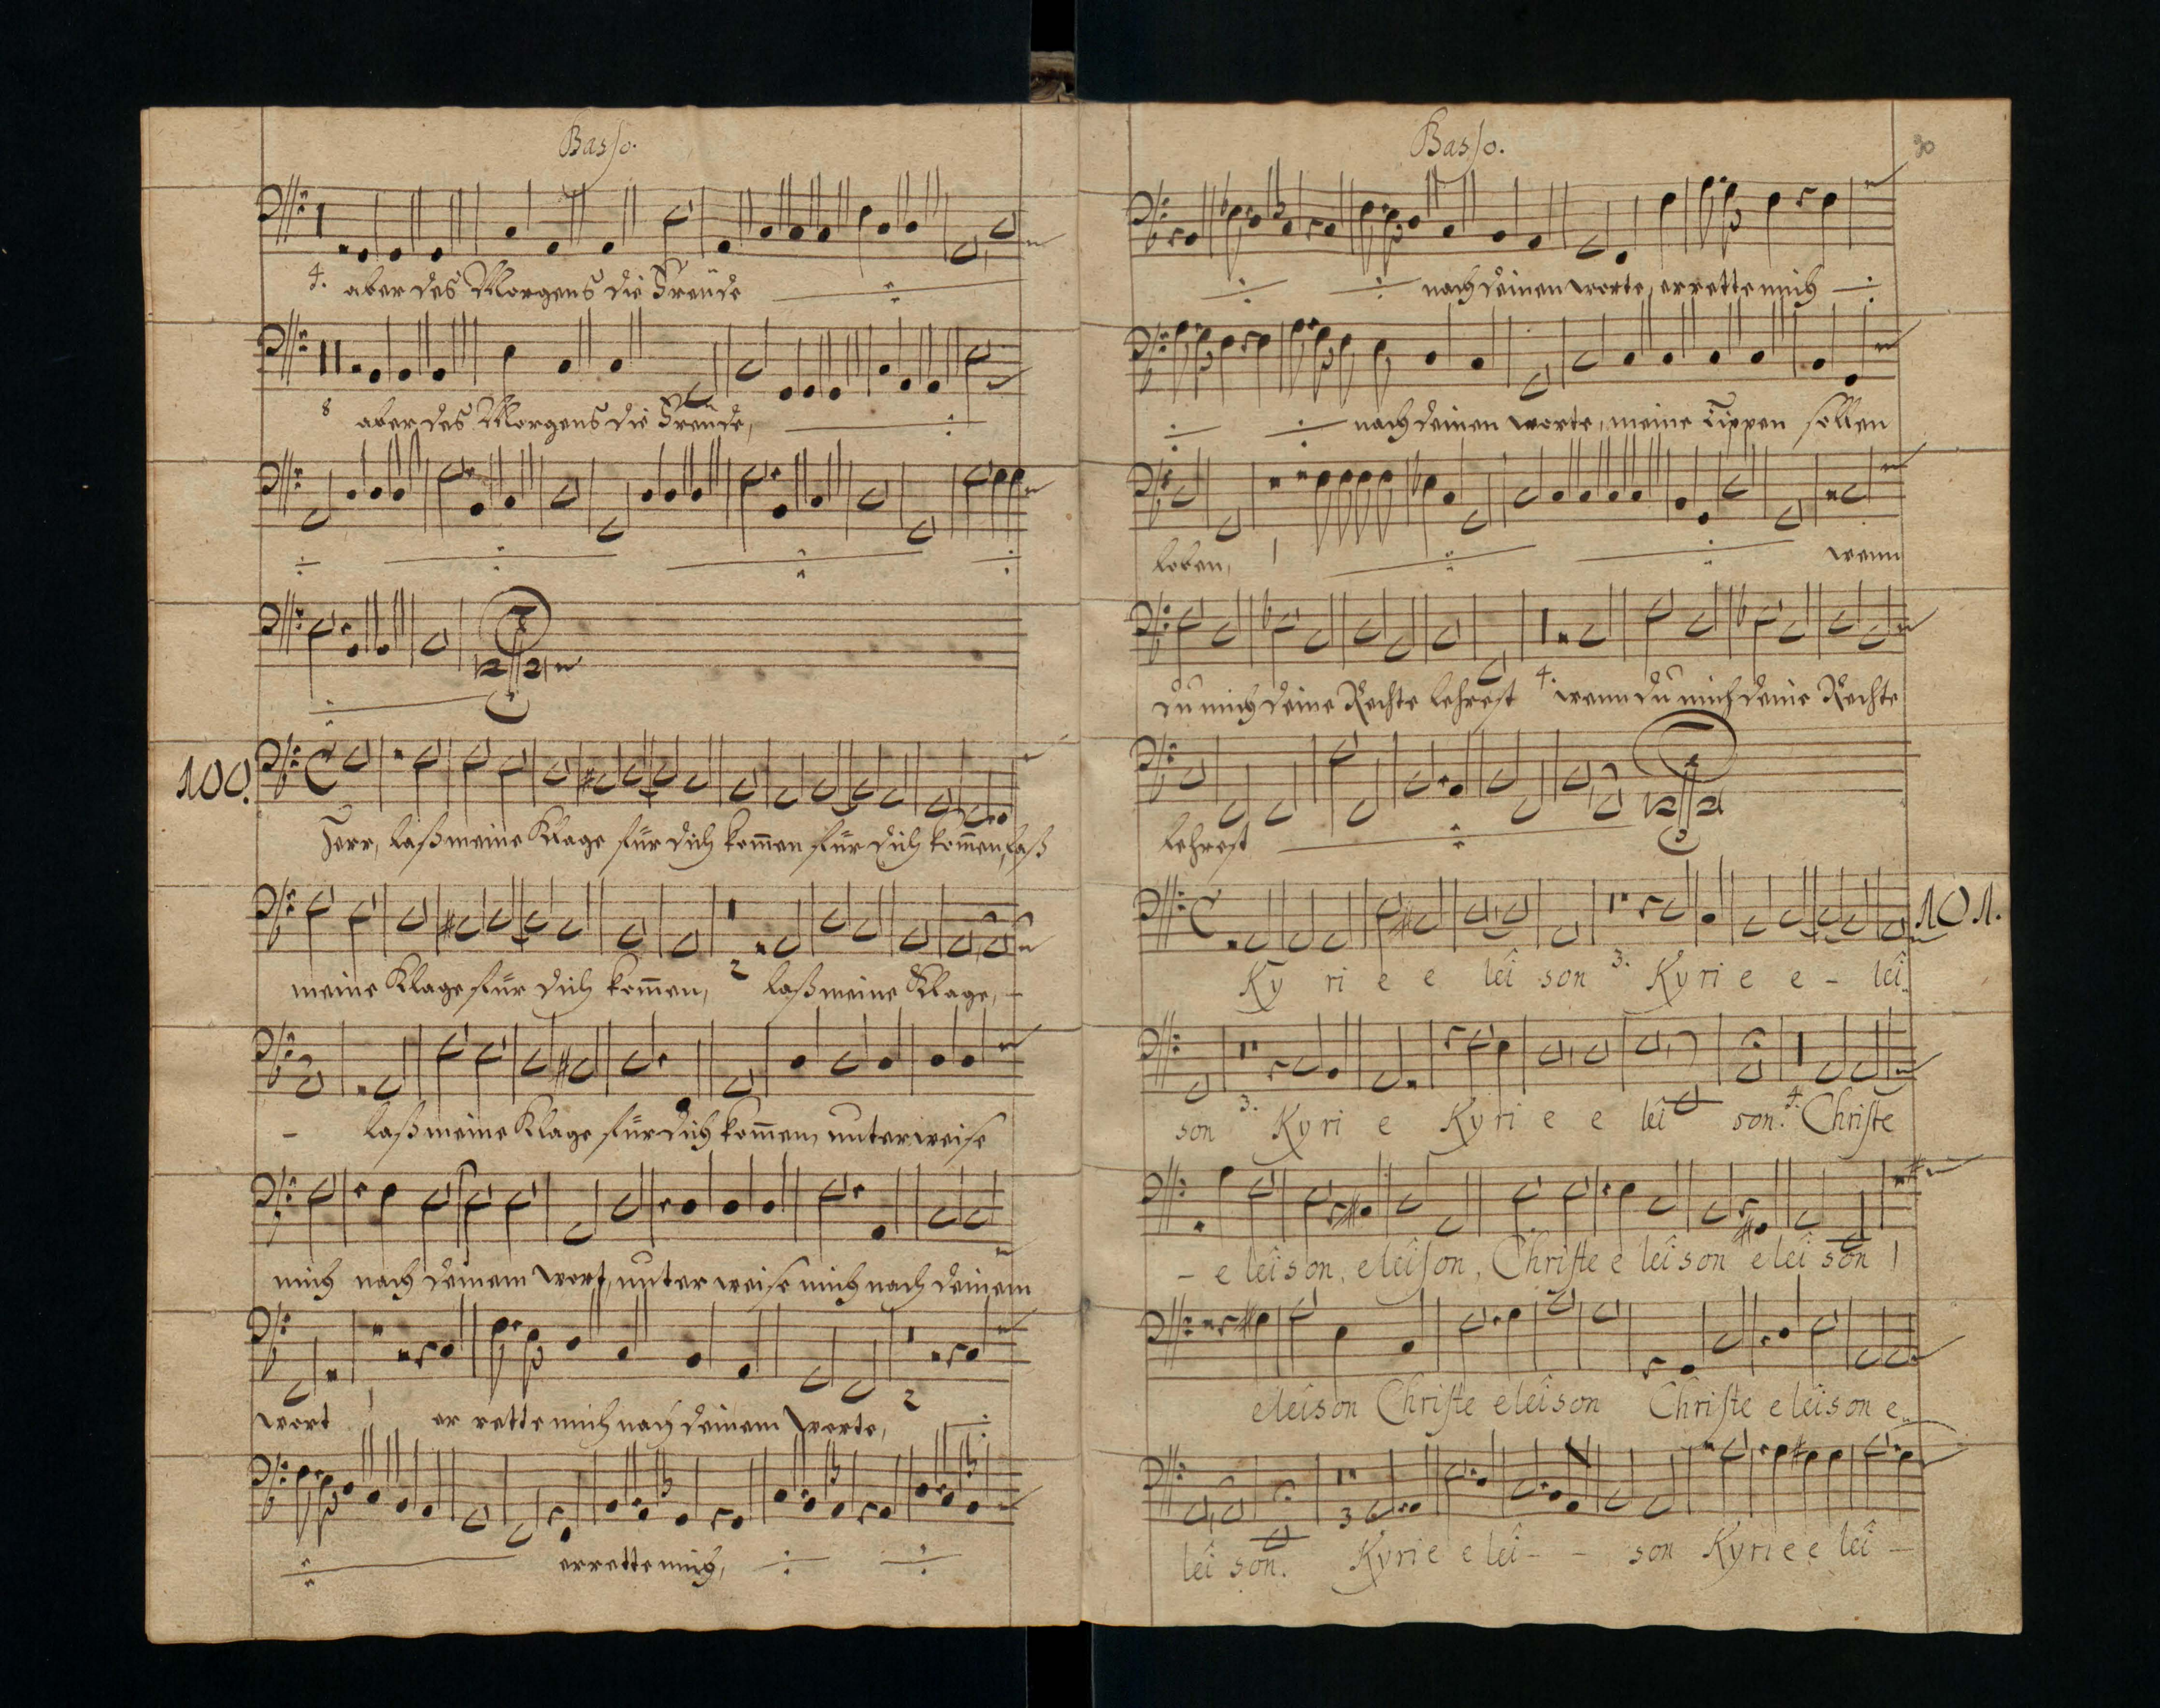 Basso.
4. aber des Morgens die Freüde
8 aber des Morgens die Freüde,
100.
Herr, laß meine Klage für dich kom̅en für dich kom̅en, laß
meine Klage für dich kom̅en, 2 laß meine Klage, –
– laß meine Klage für dich kom̅en, unterweise
mich nach deinem wort, unter weise mich nach deinem
wort 1 er rette mich nach deinem Worte, 2
errette mich,
Basso. 30
nach deinen worte, errette mich
nach deinen worte, meine Lippen sollen
loben, 1 wenn
du mich deine Rechte lehrest 4. wenn du mich deine Rechte
lehrest
101.
Ky ri e e leî son 3. Ky ri e e – leî
son 3. Ky ri e Ky ri e e leî son. 4. Christe
– e leîson, eleîson, Christe e leîson eleî son 1
eleîson Christe eleîson Christe eleîson e
leî son. 3 Kyrie eleî – – son Kyrie e leî –